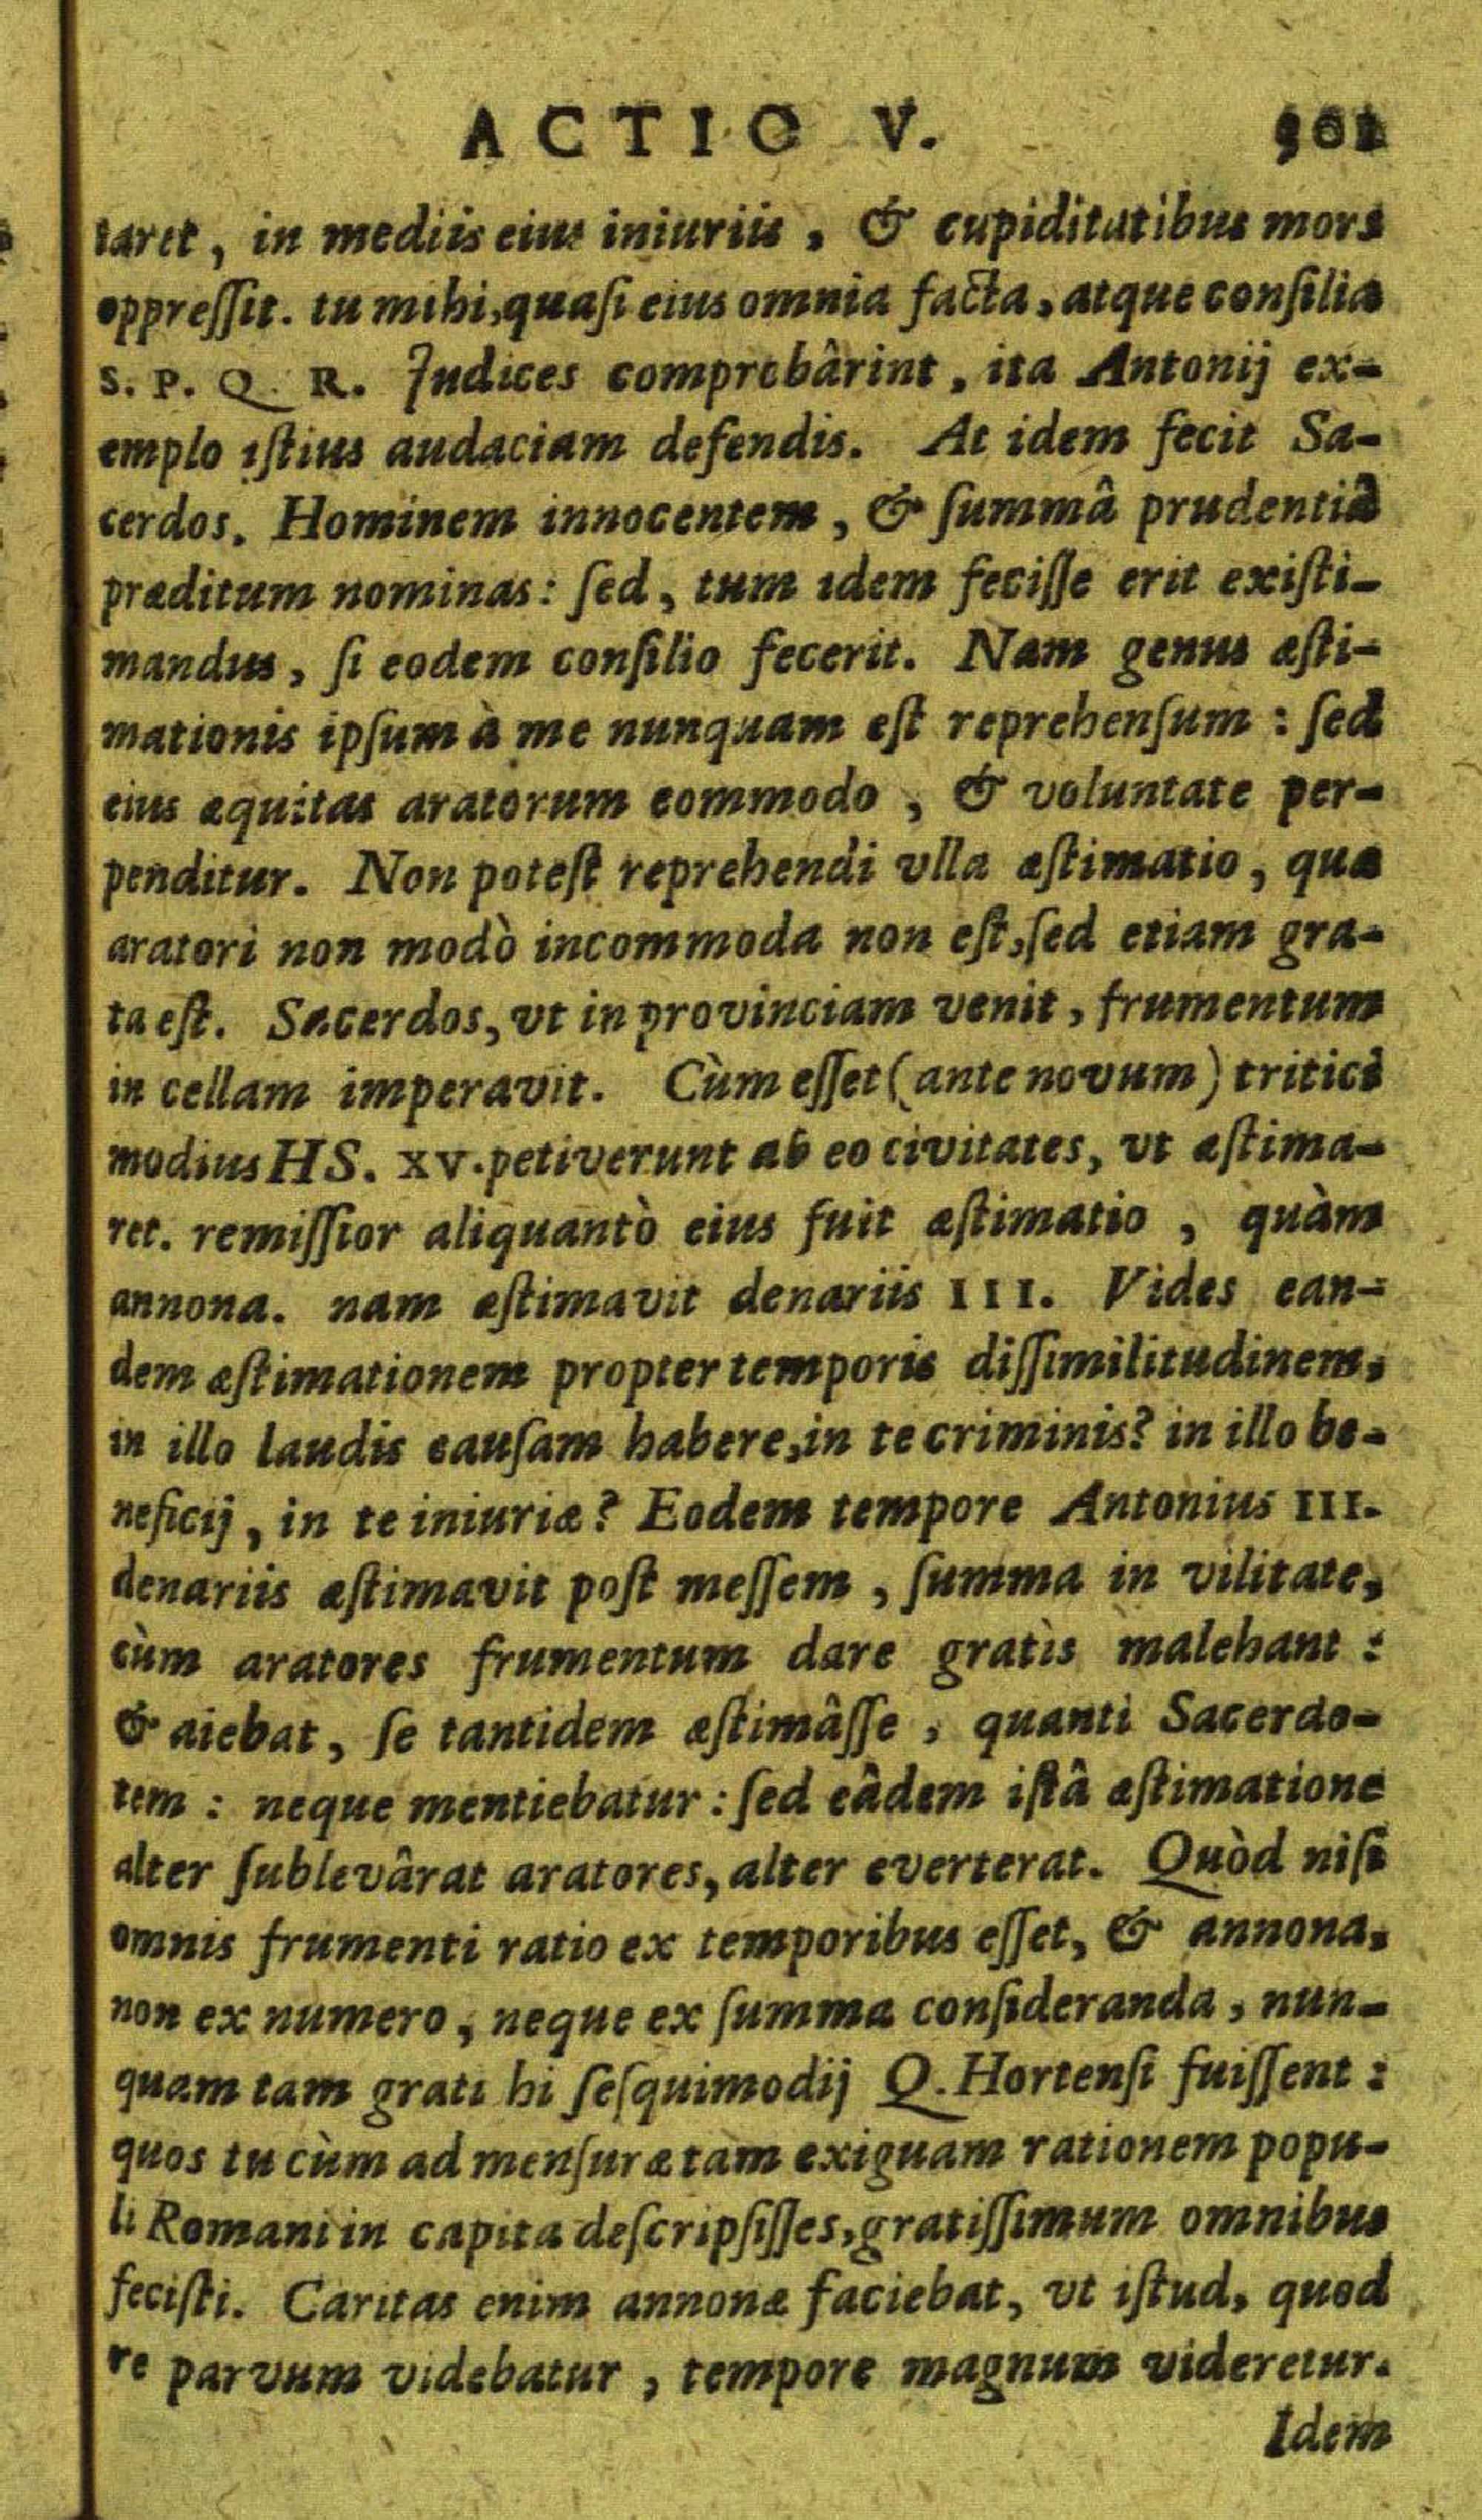 ACTIO V. 501
taret, in mediis eius iniuriis, & cupiditatibus mors
oppreſſit. tu mihi, quaſi eius omnia facta, atque conſilia
S. P. Q. R. Iudices comprobârint, ita Antonij ex-
emplo iſtius audaciam defendis. At idem fecit Sa-
cerdos. Hominem innocentem, & ſummâ prudentiâ
præditum nominas: ſed, tum idem feciſſe erit exiſti-
mandus, ſi eodem conſilio fecerit. Nam genus æſti-
mationis ipſum à me nunquam eſt reprehenſum: ſed
eius æquitas aratorum commodo, & voluntate per-
penditur. Non poteſt reprehendi vlla æſtimatio, quæ
aratori non modò incommoda non eſt, ſed etiam gra-
ta eſt. Sacerdos, vt in provinciam venit, frumentum
in cellam imperavit. Cùm eſſet (ante novum) tritici
modius HS. XV. petiverunt ab eo civitates, vt æſtima-
ret. remiſſior aliquantò eius fuit æſtimatio, quàm
annona. nam æſtimavit denariis III. Vides ean-
dem æſtimationem propter temporis diſſimilitudinem,
in illo laudis cauſam habere, in te criminis? in illo be-
neficij, in te iniuriæ? Eodem tempore Antonius III.
denariis æſtimavit poſt meſſem, ſumma in vilitate,
cùm aratores frumentum dare gratìs malebant:
& aiebat, ſe tantidem æſtimâſſe, quanti Sacerdo-
tem: neque mentiebatur: ſed eâdem iſtâ æſtimatione
alter ſublevârat aratores, alter everterat. Quòd niſi
omnis frumenti ratio ex temporibus eſſet, & annona,
non ex numero, neque ex ſumma conſideranda, nun-
quam tam grati hi ſeſquimodij Q. Hortenſi fuiſſent:
quos tu cùm ad menſuræ tam exiguam rationem popu-
li Romani in capita deſcripſiſſes, gratiſſimum omnibus
feciſti. Caritas enim annonæ faciebat, vt iſtud, quod
re parvum videbatur, tempore magnum videretur.
Idem